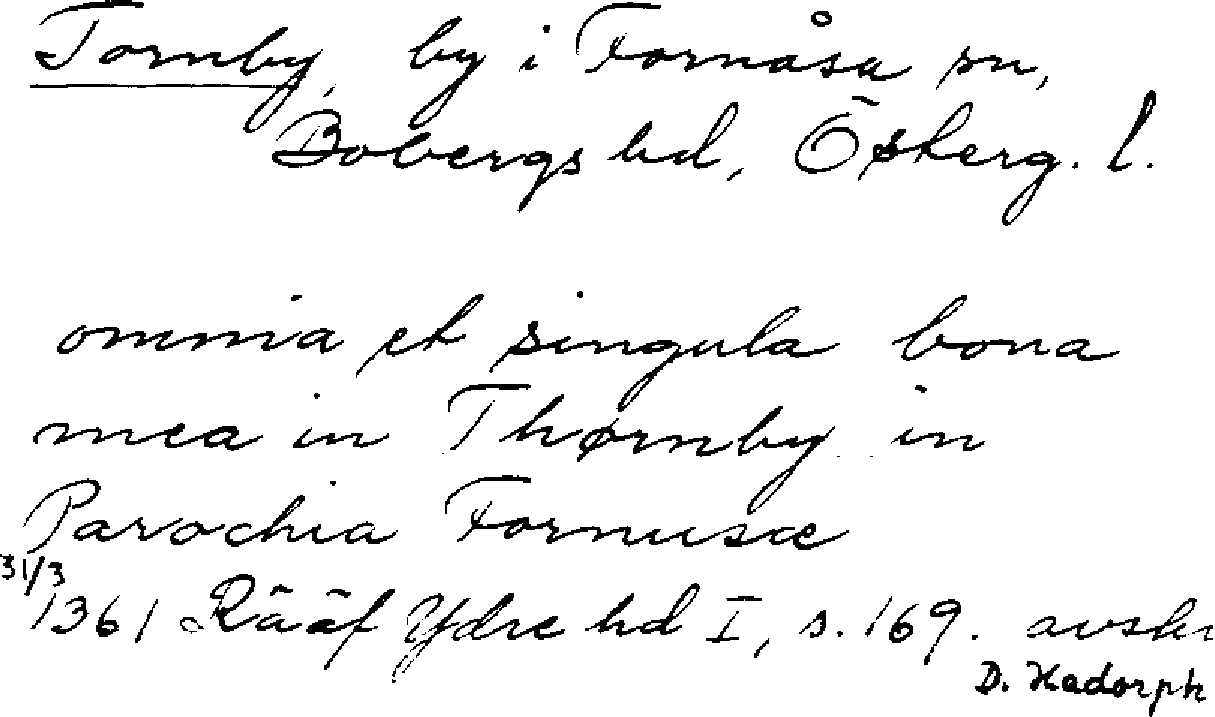 Tornby, by i Fornåsa sn,
Bobergs hd, Österg. l.
omnia et singula bona
mea in Thornby in
Parochia Fornusæ
31/3
1361 Rääf Ydre hd I, s. 169. avskr
D. Hadorph